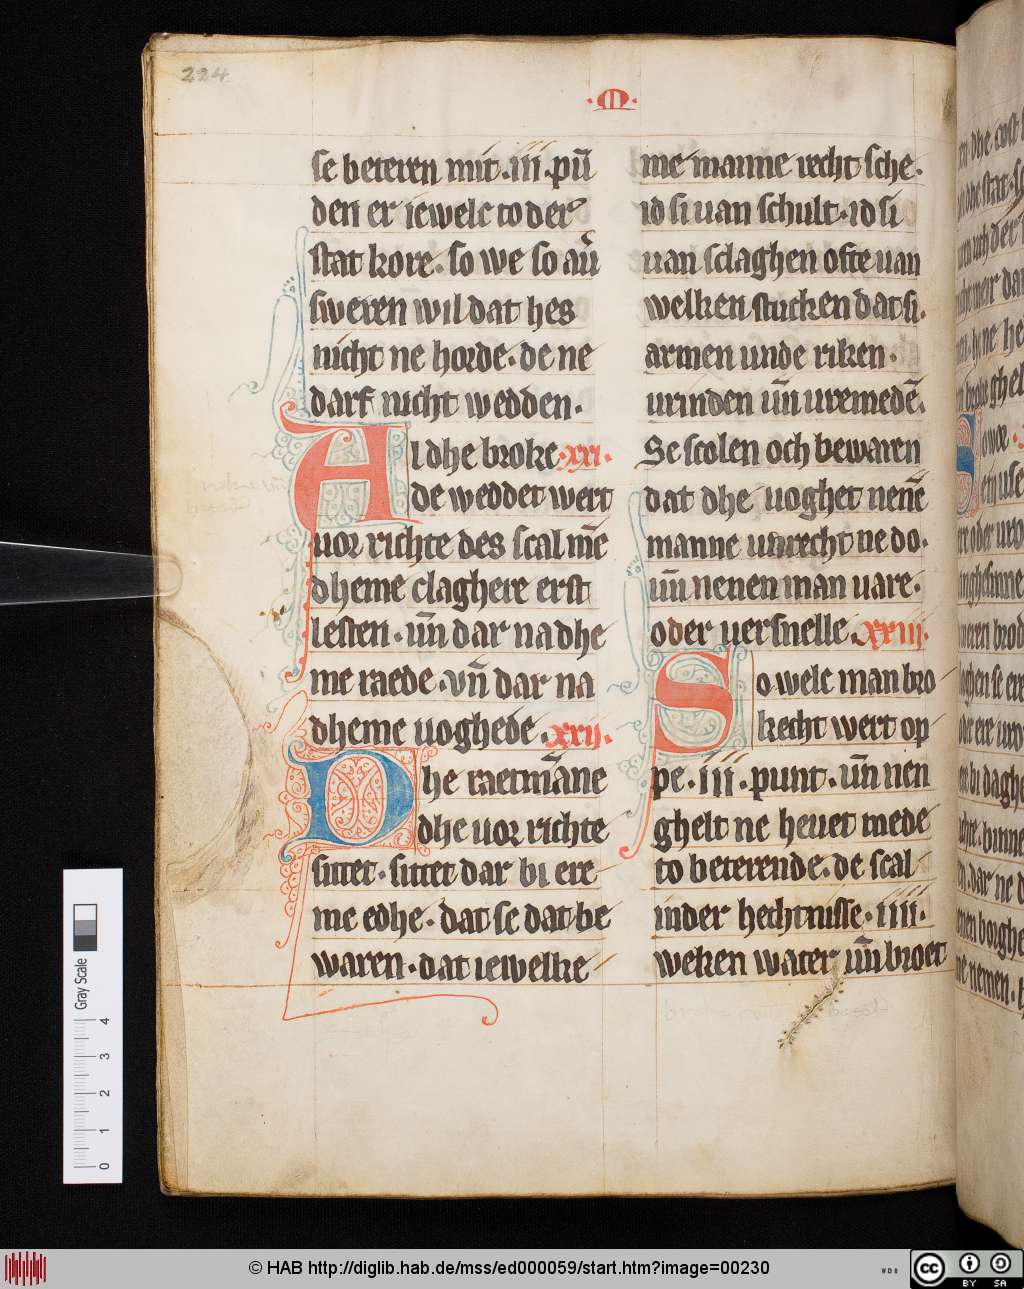 224
·M·
se beteren mit·iii·pū
den er iewelc to der
stat kore·so we so aū
sweren wil dat hes
nicht ne horde·de ne
darf nicht wedden·
Al dhe broke·xxi·
de weddet wert
uor richte des scal mē
dheme claghere erst
lesten·uñ dar na dhe
me raede·vñ dar na
dheme uoghede·xxii·
Dhe raetmāne
dhe uor richte
sittet·sittet dar bi ere
me edhe·dat se dat be
waren·dat iewelke
me manne recht sche·
id si uan schult·id si
uan sclaghen ofte uan
welken stucken dat si·
armen unde riken·
urinden uñ uremedē·
Se scolen och bewaren
dat dhe uoghet nenē
manne unrecht ne do·
uñ nenen man uare·
oder uersnelle·xxiii·
So welc man bro
kecht wert op
pe·iii·punt·uñ nen
ghelt ne heuet mede
to beterende·de scal
inder hechtnisse·iiii·
weken water uñ broet
Gray Scale
4
3
2
1
0
© HAB http://diglib.hab.de/mss/ed000059/start.htm?image=00230
WDB
cc
BY SA